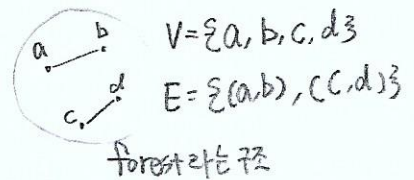 a b
c d
V={a, b, c, d}
E={(a,b), (c,d)}
forest 라는 구조